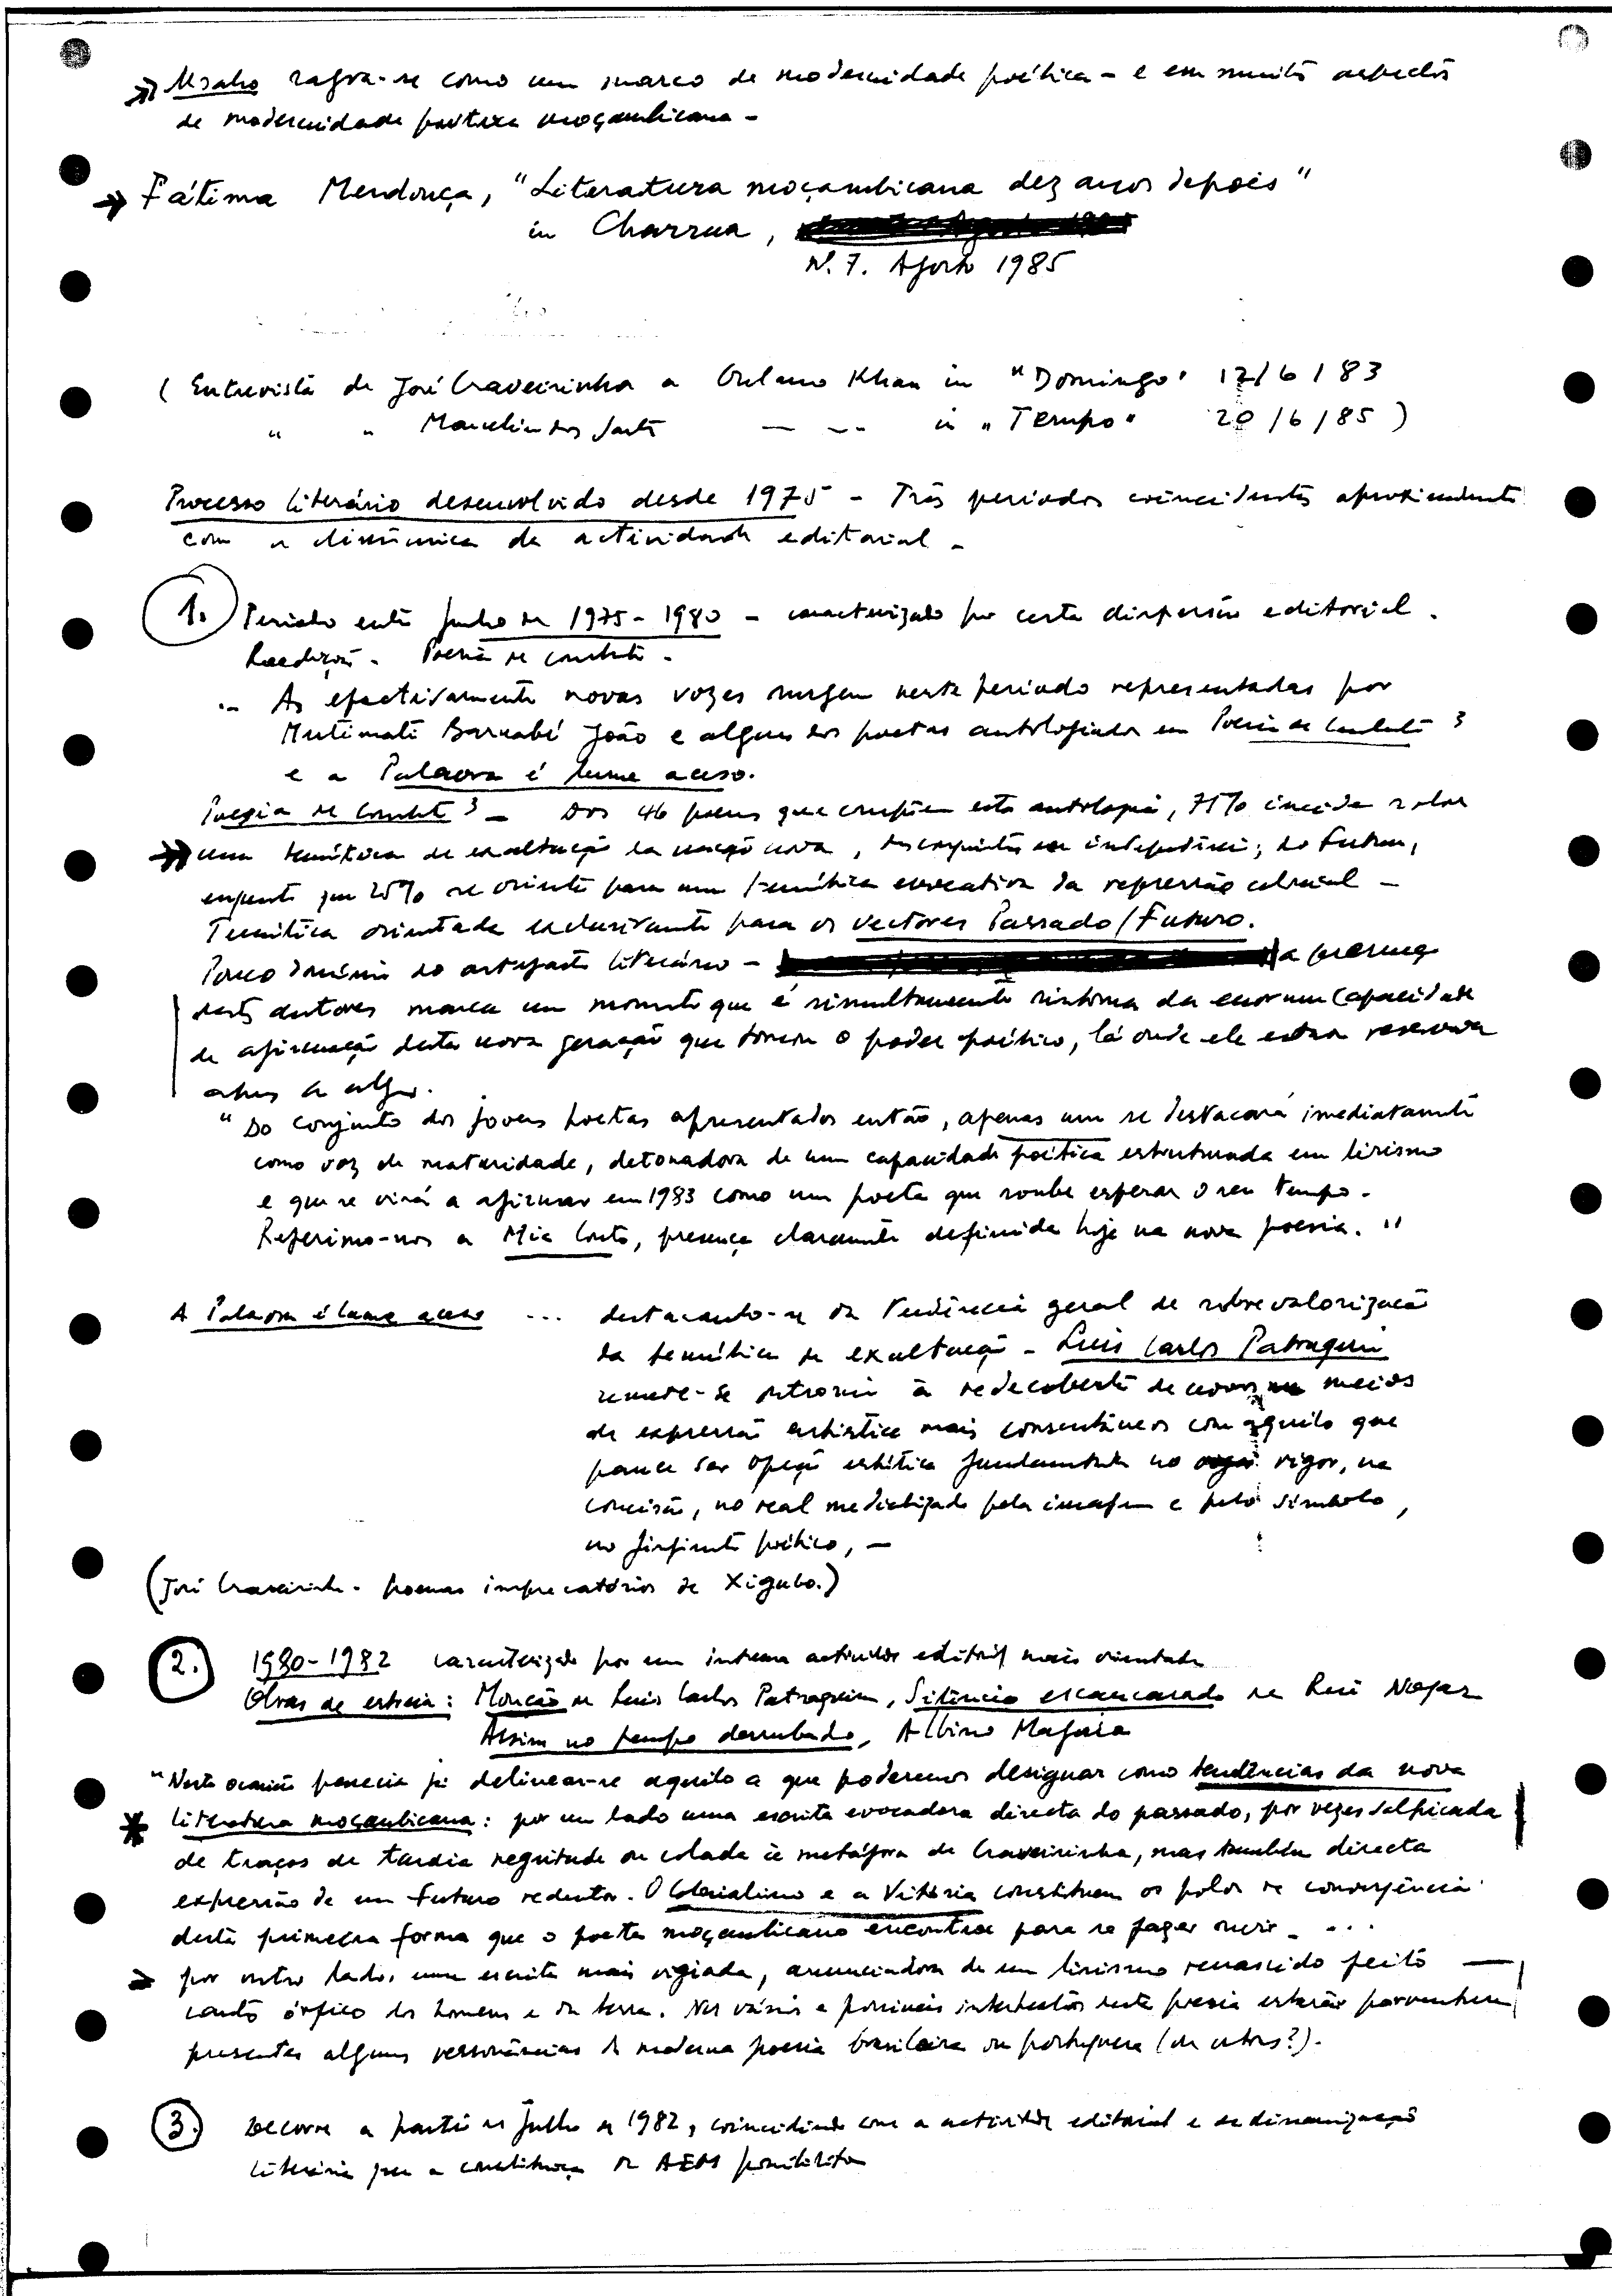 Msaho rasgra-se como um marco de modernidade poética - e em muitos aspectos
de modernidade poética moçambicana -
Fátima Mendonça, "Literatura moçambicana dez anos depois"
in Charrua,
N. 7. Agosto 1985
(Entrevista de José Craveirinha a Gulamo Khan in "Domingo" 12/6/83
" " Marcelino dos Santos — -- in "Tempo" 20/6/85)
Processo literário desenvolvido desde 1975 - Três períodos coincidentes aproximadamente
com a dinâmica da actividade editorial -
1. Período entre Junho de 1975-1980 - caracterizado por certa dispersão editorial.
Reedição - Poesia de combate -
.. As efectivamente novas vozes surgem neste período representadas por
Mutimati Barnabé João e alguns dos poetas antologiados em Poesia de Combate 3
e a Palavra é lume aceso.
Poesia de Combate 3 - Dos 46 poemas que compõem esta antologia, 75% incide sobre
uma temática de exaltação da nação nova, da conquista da independência, do futuro,
enquanto que 25% se orienta para uma temática evocativa da repressão colonial -
Temática orientada exclusivamente para os vectores Passado/Futuro.
Pouco domínio do artefacto literário - a presença
destes autores marca um momento que é simultaneamente sintoma da enorme capacidade
de afirmação desta nova geração que tomou o poder poético, lá onde ele estava reservado
apenas a alguns.
"Do conjunto dos jovens poetas apresentados então, apenas um se destacará imediatamente
como voz de maturidade, detonadora de uma capacidade poética estruturada em lirismo
e que se virá a afirmar em 1983 como um poeta que soube esperar o seu tempo.
Referimo-nos a Mia Couto, presença claramente definida hoje na nova poesia."
A Palavra é lume aceso ... destacando-se da tendência geral de sobrevalorização
da temática de exaltação - Luís Carlos Patraquim
remete-se à redescoberta de novos meios
de expressão artística mais consentâneos com aquilo que
parece ser opção estética fundamentada no rigor, na
concisão, no real mediatizado pela imagem e pelo símbolo,
no fingimento poético, -
(José Craveirinha - poemas imprecatórios de Xigubo.)
2. 1980-1982 caracterizado por uma intensa actividade editorial mais orientada
Obras de estreia: Monção de Luís Carlos Patraquim, Silêncio escancarado de Rui Nogar
Assim no tempo derrubado, Albino Magaia
"Nesta ocasião parecia já delinear-se aquilo a que poderemos designar como tendências da nova
literatura moçambicana: por um lado uma escrita evocadora directa do passado, por vezes salpicada
de traços de tardia negritude ou colada à metáfora de Craveirinha, mas também directa
expressão de um futuro redentor. O Colonialismo e a Vitória constituem os polos de convergência
desta primeira forma que o poeta moçambicano encontra para se fazer ouvir - ...
por outro lado, uma escrita mais vigiada, anunciadora de um lirismo renascido feito —
canto órfico dos homens e da terra. Nos vários e possíveis intertextos desta poesia estarão porventura
presentes algumas ressonâncias da moderna poesia brasileira ou portuguesa (ou outras?).
3. Decorre a partir de Julho de 1982, coincidindo com a actividade editorial e de dinamização
literária que a constituição da AEMO possibilitou